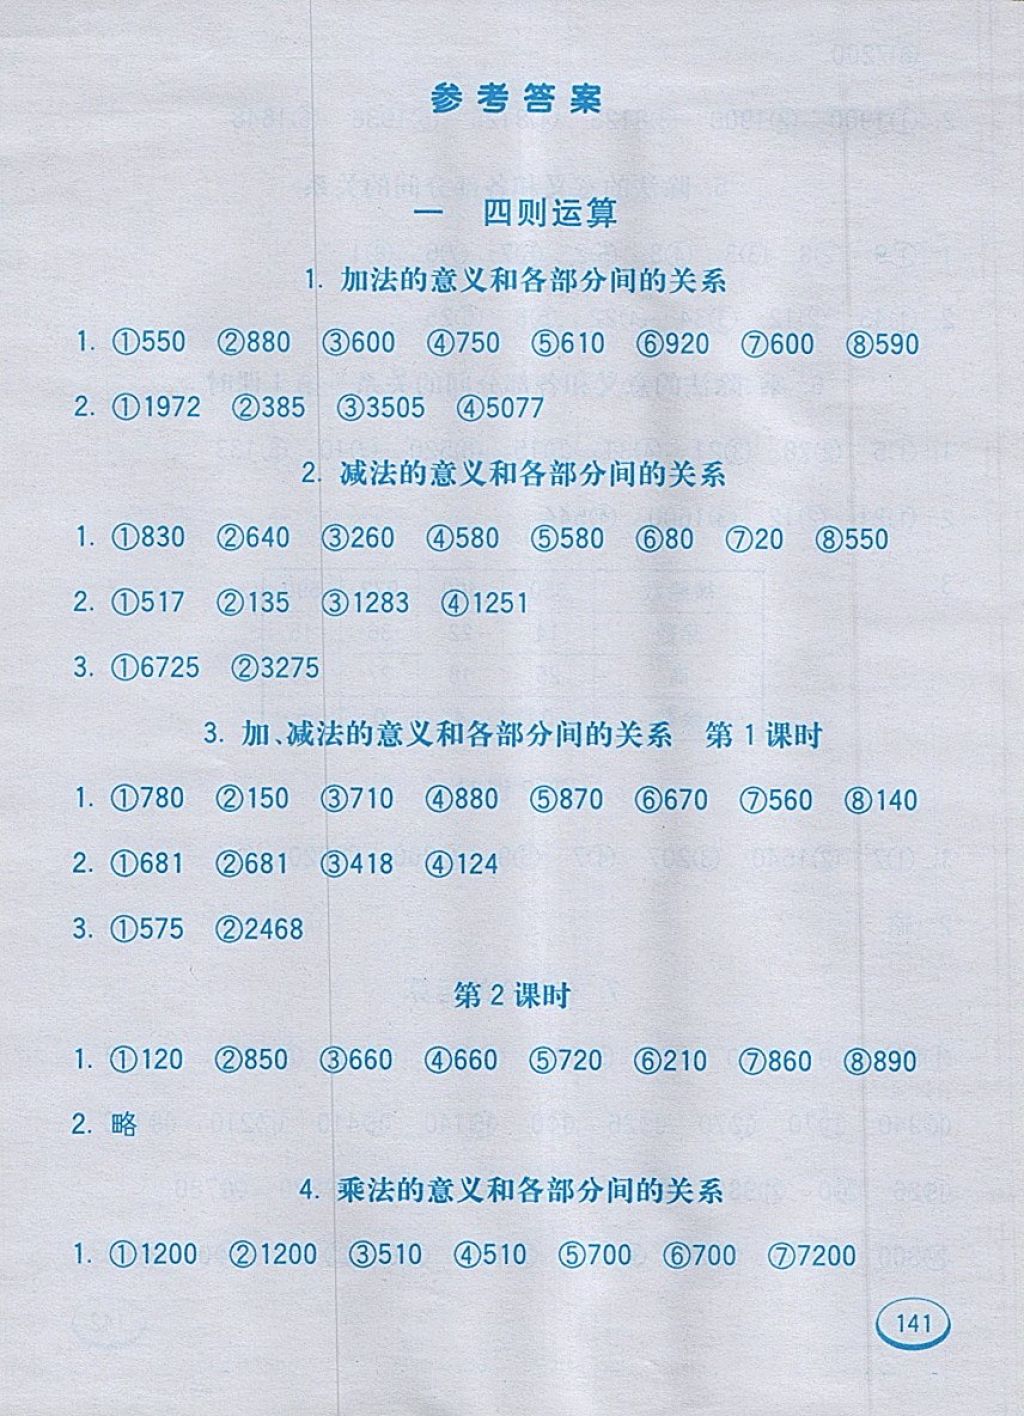 参考答案
一 四则运算
1. 加法的意义和各部分间的关系
1. ①550 ②880 ③600 ④750 ⑤610 ⑥920 ⑦600 ⑧590
2. ①1972 ②385 ③3505 ④5077
2. 减法的意义和各部分间的关系
1. ①830 ②640 ③260 ④580 ⑤580 ⑥80 ⑦20 ⑧550
2. ①517 ②135 ③1283 ④1251
3. ①6725 ②3275
3. 加、减法的意义和各部分间的关系 第1课时
1. ①780 ②150 ③710 ④880 ⑤870 ⑥670 ⑦560 ⑧140
2. ①681 ②681 ③418 ④124
3. ①575 ②2468
第2课时
1. ①120 ②850 ③660 ④660 ⑤720 ⑥210 ⑦860 ⑧890
2. 略
4. 乘法的意义和各部分间的关系
1. ①1200 ②1200 ③510 ④510 ⑤700 ⑥700 ⑦7200
141